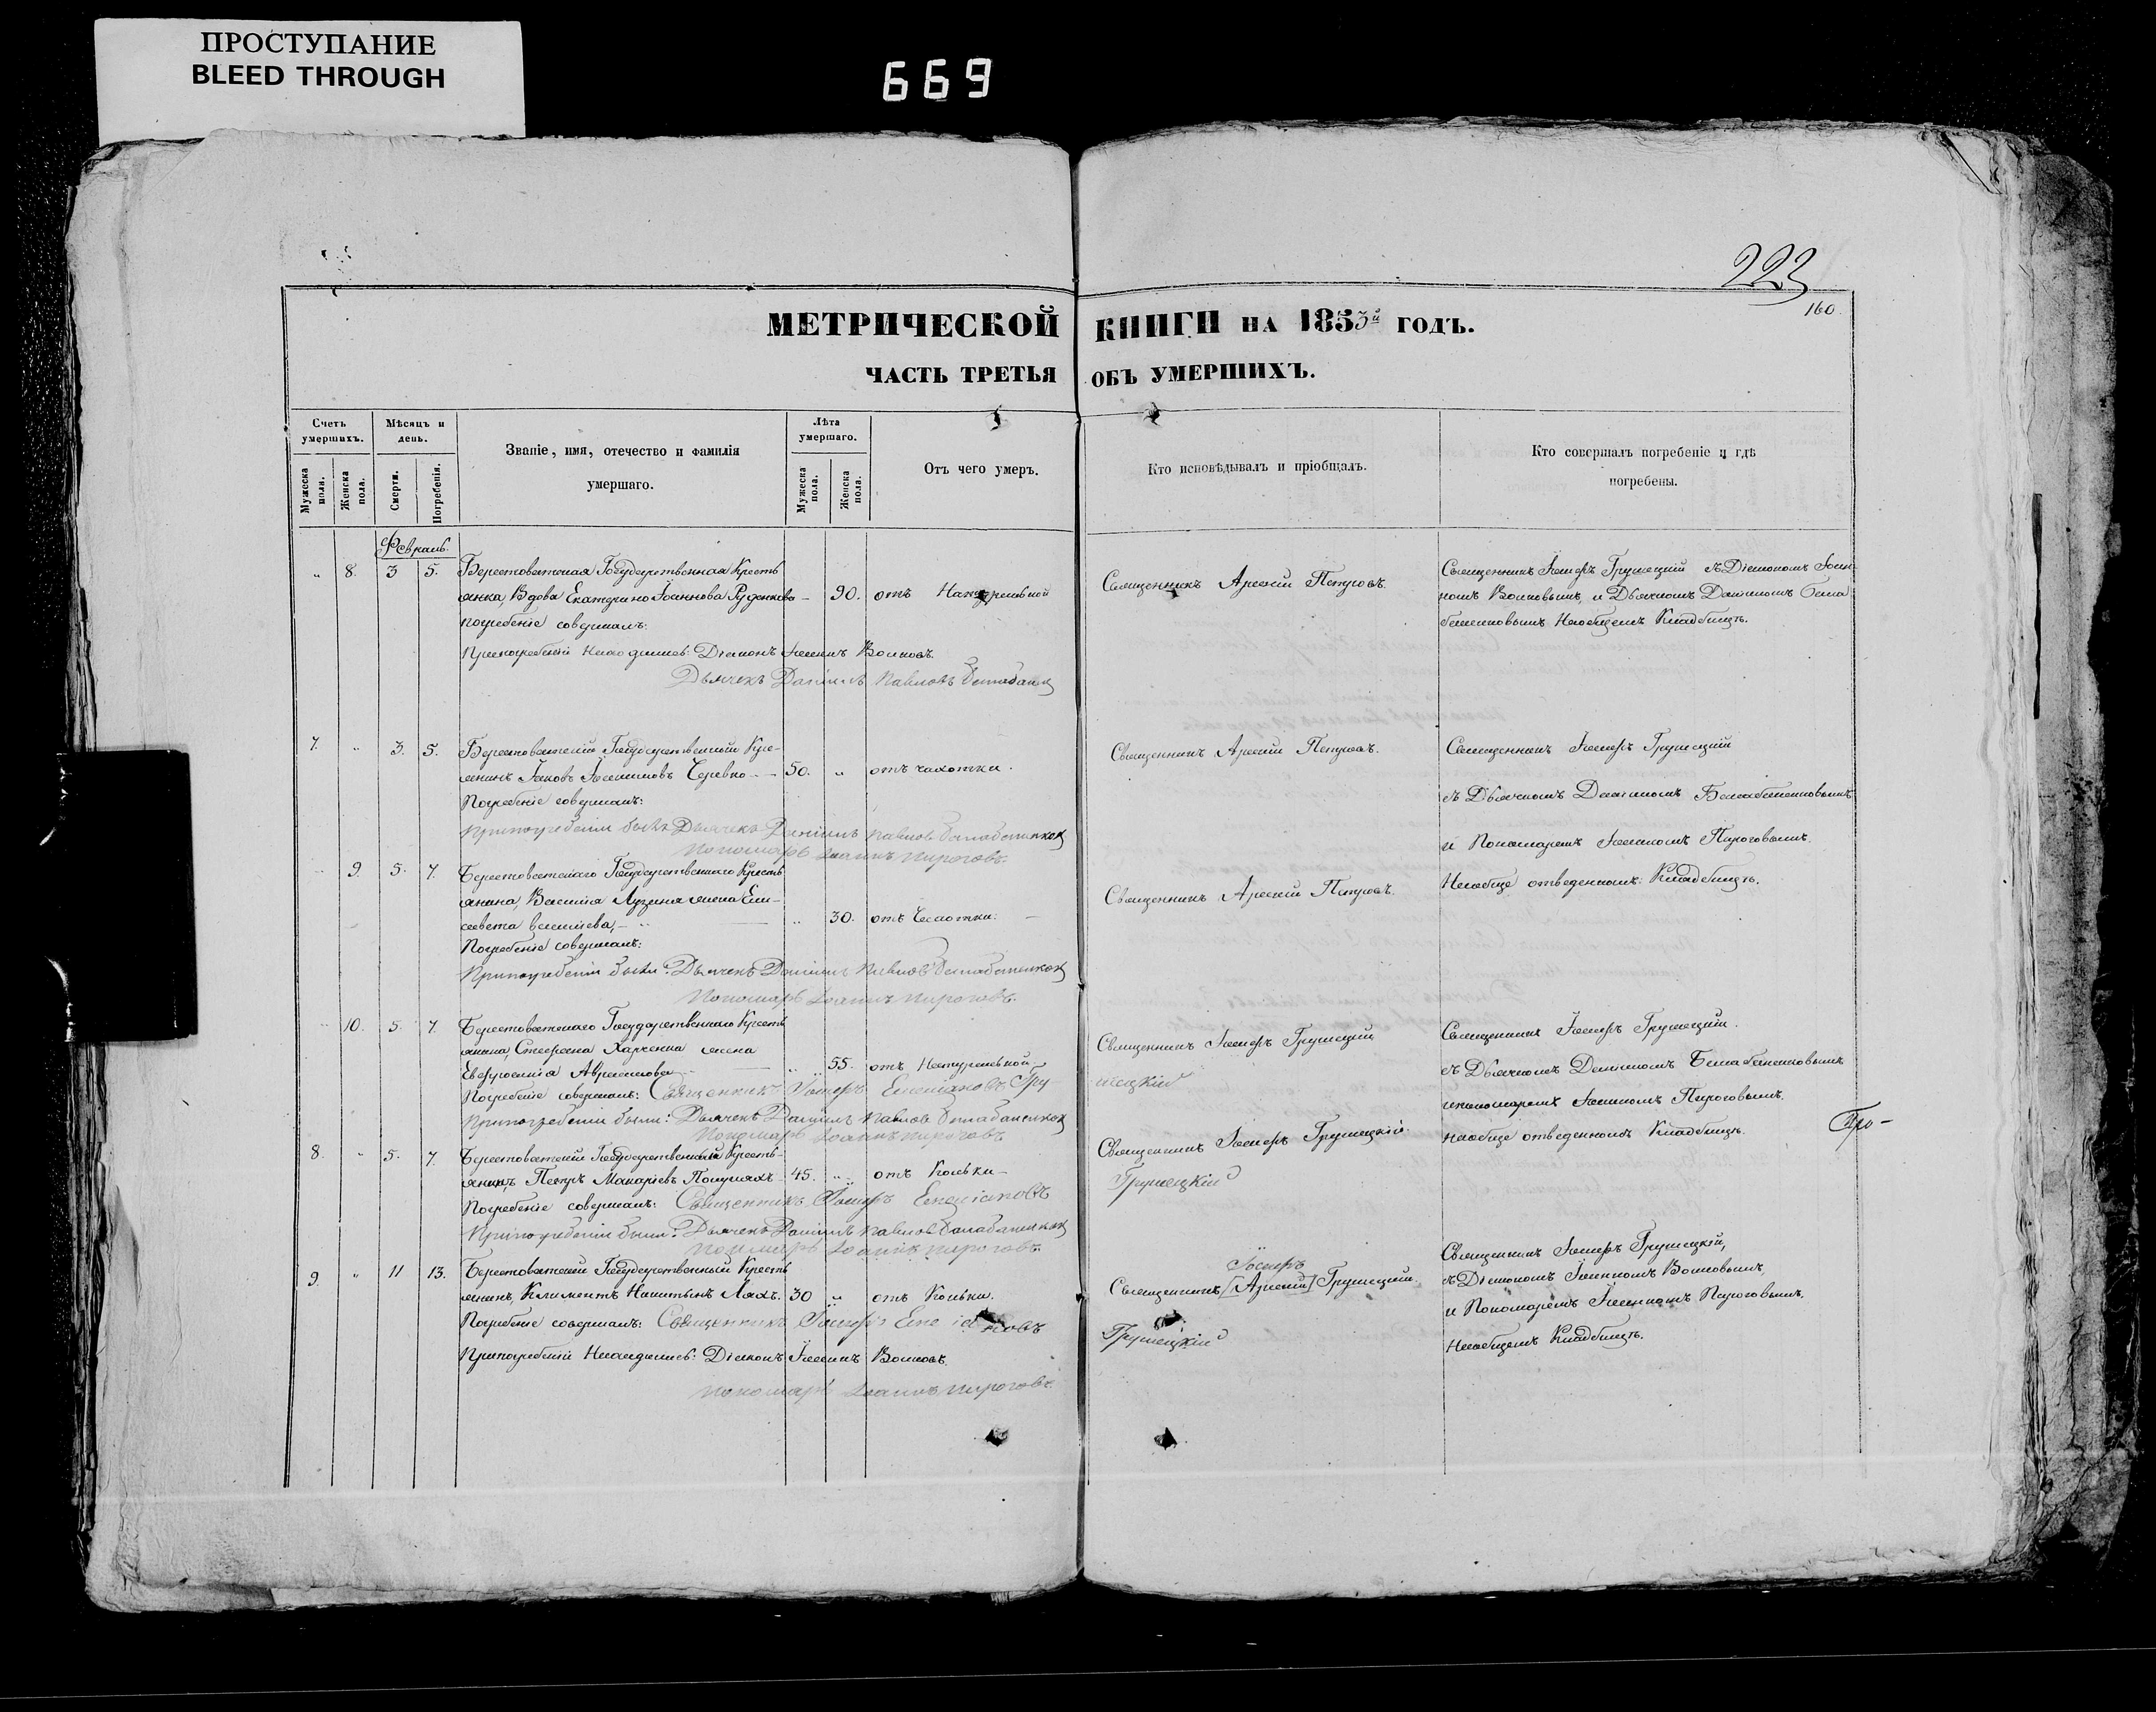 ПРОСТУПАНИЕ
BLEED THROUGH
669
223
160.
МЕТРИЧЕСКОЙ КНИГИ НА 1853й ГОДЪ.
ЧАСТЬ ТРЕТЬЯ ОБЪ УМЕРШИХЪ.
Счетъ умершихъ.
Мужеска пола.
Женска пола.
Мѣсяцъ и день.
Смерти.
Погребенія.
Званіе, имя, отечество и фамилія умершаго.
Лѣта умершаго.
Мужеска пола.
Женска пола.
Отъ чего умеръ.
Кто исповѣдывалъ и пріобщалъ.
Кто совершалъ погребеніе и гдѣ погребены.
Февраль.
„ 8. 3 5. Берестоватская Государственная Кресть
янка, Вдова Екатерина Іоаннова Руденкова – 90. отъ Натуральной
Погребеніе совершалъ:
При погребеніи находились: Діаконъ Іоаннъ Волковъ.
Дьячекъ Даніилъ Павловъ
Священникъ Арсеній Петровъ.
Священникъ Іосифъ Грушецкій съ Діакономъ Іоан
номъ Волковымъ, и Дьячкомъ Даніиломъ Бала
баненковымъ На общемъ Кладбищѣ.
7. „ 3. 5. Берестоватскій Государственный Кре-
янинъ Яковъ Черевко – 50. „ отъ чахотки.
Погребеніе совершалъ:
При погребеніи были: Дьячекъ Даніилъ Павловъ Балабаненков
Пономарь Іоаннъ Пироговъ.
Священникъ Арсеній Петровъ.
Священникъ Іосифъ Грушецкій
съ Дьячкомъ Даніиломъ Балабаненковымъ
и Пономаремъ Іоанномъ Пироговымъ.
На обще отведенномъ Кладбищѣ.
„ 9. 5. 7. Берестоватскаго Государственнаго Кресть
янина, Василія жена Ели-
савета – „ 30. отъ Чахотки.
Погребеніе совершалъ:
При погребеніи были: Дьячекъ Даніилъ Павловъ Балабаненков
Пономарь Іоаннъ Пироговъ.
Священникъ Арсеній Петровъ.
„ 10. 5. 7. Берестоватскаго Государственнаго Кресть
янина Стефана Харченка жена
Евфросинія „ 55. отъ Натуральной
Погребеніе совершалъ: Священникъ Іосифъ Гру-
шецкій
При погребеніи были: Дьячекъ Даніилъ Павловъ Балабаненков
Пономарь Іоаннъ Пироговъ
Священникъ Іосифъ Грушецкій
Священникъ Іосифъ Грушецкій.
съ Дьячкомъ Даніиломъ Балабаненковымъ
и пономаремъ Іоанномъ Пироговымъ.
на обще отведенномъ Кладбищѣ.
Про-
8. „ 5. 7. Берестоватскій Государственный Кресть-
янинъ Петръ Макаріевъ – 45. „ отъ Кольки –
Погребеніе совершалъ: Священникъ Іосифъ
Грушецкій
При погребеніи были: Дьячекъ Даніилъ Павловъ Балабаненков
Пономарь Іоаннъ Пироговъ.
Священникъ Іосифъ Грушецкій
9. „ 11 13. Берестоватскій Государственный Кресть
янинъ, Климентъ Никитинъ Ляхъ. 30 „ отъ Кольки.
Погребеніе совершалъ: Священникъ Іосифъ
Грушецкій
При погребеніи находились: Діаконъ Іоаннъ Волковъ.
Пономарь Іоаннъ Пироговъ.
Іосифъ
Священникъ [Арсеній] Грушецкій.
Священникъ Іосифъ Грушецкій,
съ Діакономъ Іоанномъ Волковымъ,
и Пономаремъ Іоанномъ Пироговымъ.
На общемъ Кладбищѣ.